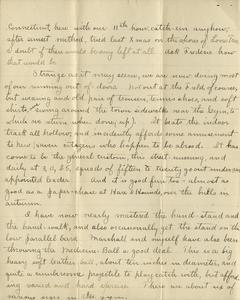 Connecticut here with our 11th hour, catch-em anyhow,
after sunset method, tied last man on the shore of
a doubt if there would be any left at all. Ask Frederic how
that would be.
Strange as it may seem, we are now doing most
of our running out of doors. Not out at the Field of course,
but wearing old pair of trousers, tennis shoes, and soft
shirts, swing around the town sidewalks near the
which we strip when done up). It beats the indoor
track all hollow, and incidently affords some amusement
to New Haven citizens who happen to be abroad. It has
come to be the general custom, this street running, and
daily at 9, 10, 5, squads of fifteen to twenty go out under an
appointed leader. And it is good fun, almost as
good as a paper-chase at Hare & Hounds, over the hills in
autumn.
I have now nearly mastered the hand-stand and
the hand-walk, and also occasionally get the stand on the
low parallel bars. Marshall and myself have also been
throwing the Medicine Ball a good deal. This is a big
heavy soft leather ball, about ten inches in diameter, and
quite a cumbersome projectile to play catch with, but afford-
ing varied and hard exercise. There are about six of
various sizes in the gym.